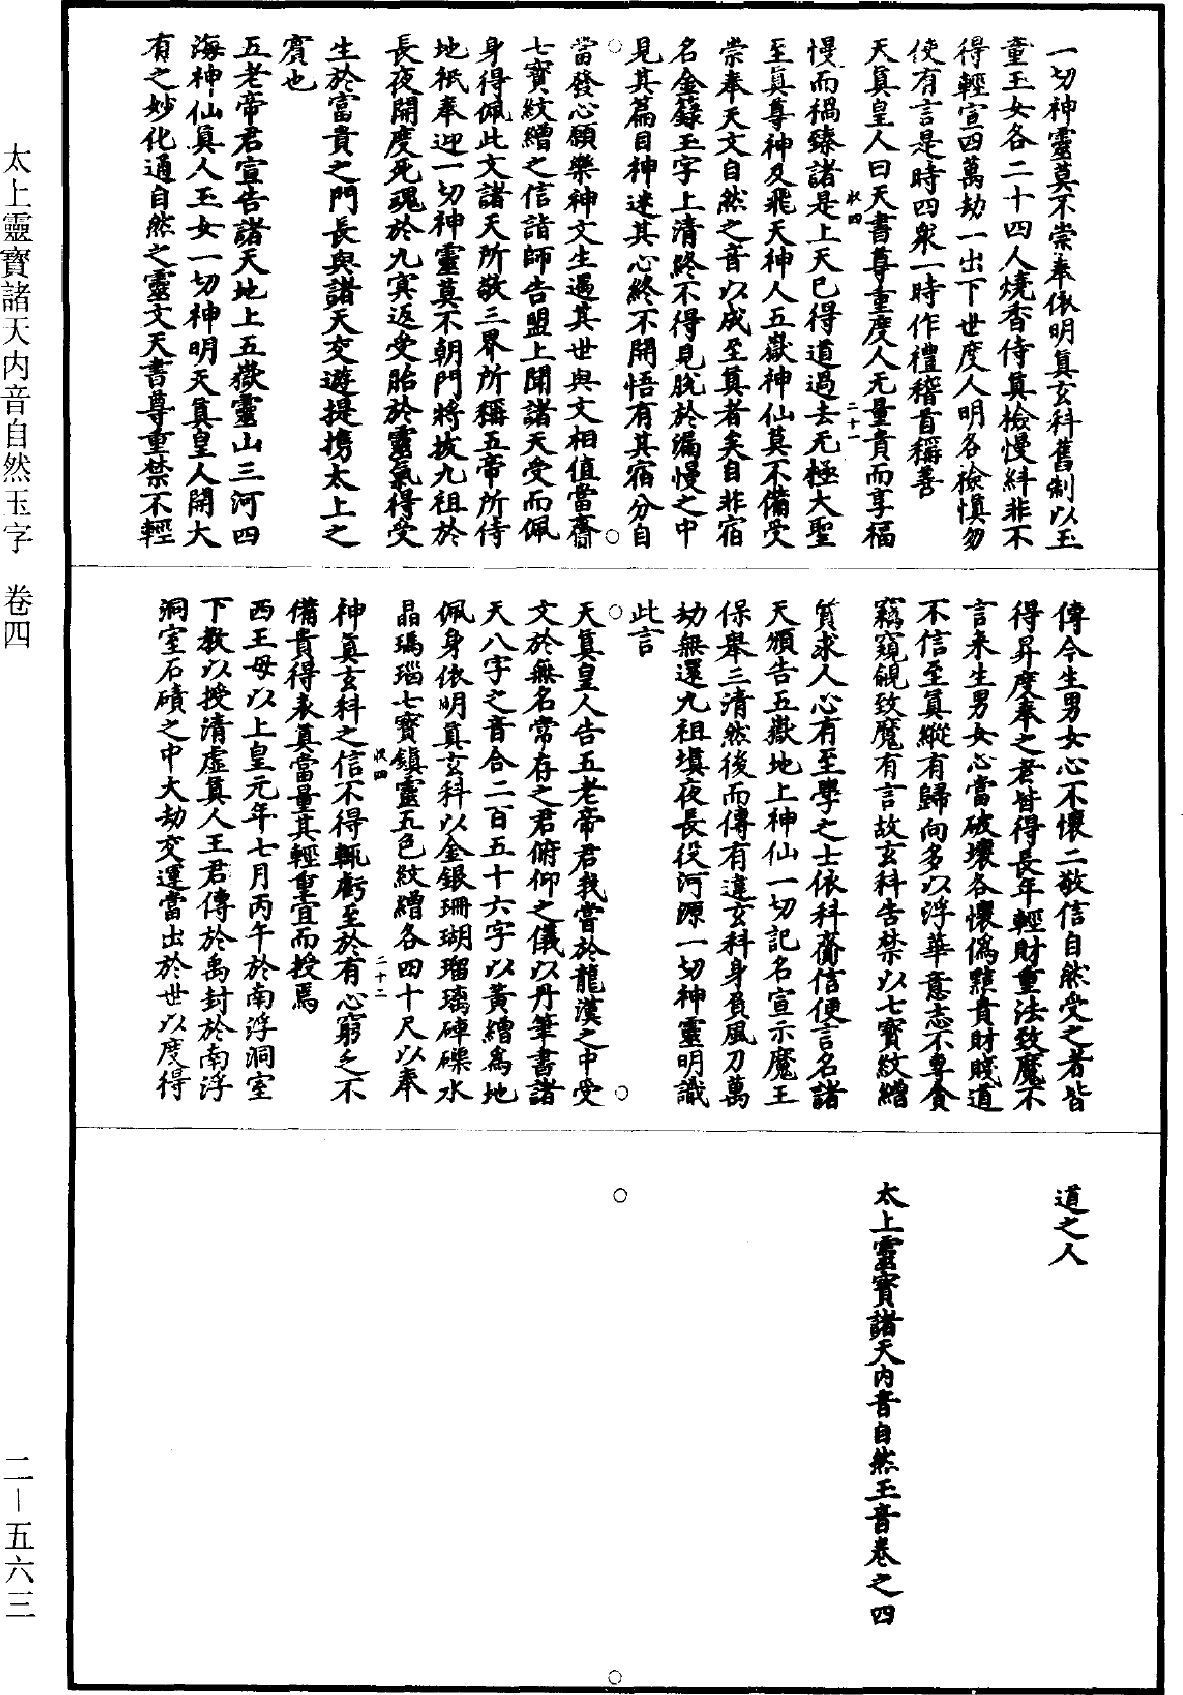 一切神靈莫不崇奉依明真玄科舊制以玉
童玉女各二十四人燒香侍真檢慢糾非不
得輕宣四萬劫一出下世度人明各檢慎勿
使有言是時四衆一時作禮稽首稱善
天真皇人曰天書尊重度人无量貴而享福
状四
二十一
慢而禍臻諸是上天已得道過去无極大聖
至真尊神及飛天神人五嶽神仙莫不備受
崇奉天文自然之音以成至真者矣自非宿
名金籙玉字上清終不得見脫於漏慢之中
見其篇目神迷其心終不開悟有其宿分自
當發心願樂神文生遇其世與文相值當齎
七寶紋繒之信詣師告盟上聞諸天受而佩
身得佩此文諸天所敬三界所稱五帝所侍
地祇奉迎一切神靈莫不朝門將拔九祖於
長夜開度死魂於九冥返受胎於靈氣得受
生於富貴之門長與諸天交遊提携太上之
賓也
五老帝君宣告諸天地上五嶽靈山三河四
海神仙真人玉女一切神明天真皇人開大
有之妙化通自然之靈文天書尊重禁不輕
傳今生男女心不懷二敬信自然受之者皆
得昇度奉之者皆得長年輕財重法致魔不
言来生男女心當破壞各懷僞難貴財賤道
不信至真縱有歸向多以浮華意志不專貪
竊窺覦致魔有言故玄科告禁以七寶紋繒
質求人心有至學之士依科齎信便言名諸
天頒告五嶽地上神仙一切記名宣示魔王
保舉三清然後而傳有違玄科身負風刀萬
劫無還九祖塡夜長役河源一切神靈明識
此言
天真皇人告五老帝君我嘗於龍漢之中受
文於無名常存之君俯仰之儀以丹筆書諸
天八字之音合二百五十六字以黃繒爲地
佩身依明真玄科以金銀珊瑚瑠璃硨磲水
晶瑪瑙七寶鎮靈五色紋繒各四十尺以奉
状四
二十二
神真玄科之信不得輒虧至於有心窮乏不
備貴得表真當量其輕重宜而授焉
西王母以上皇元年七月丙午於南浮洞室
下教以授清虛真人王君傳於禹封於南浮
洞室石磧之中大劫交運當出於世以度得
道之人
太上靈寶諸天内音自然玉音卷之四
太上靈寶諸天内音自然玉字 卷四
二－五六三